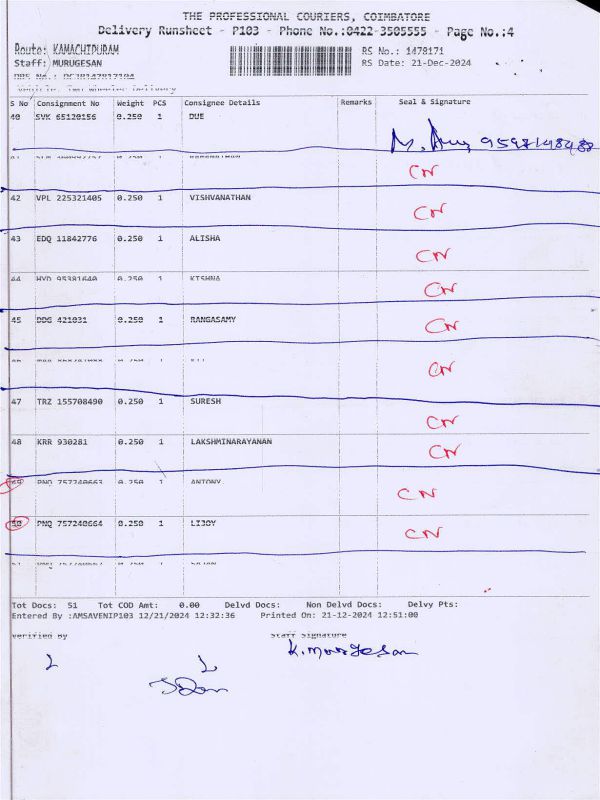 THE PROFESSIONAL COURIERS, COIMBATORE
Delivery Runsheet - P103 - Phone No.:0422-3505555 - Page No.:4
Route: KAMACHIPURAM
RS No.: 1478171
Staff: MURUGESAN
RS Date: 21-Dec-2024
S No Consignment No Weight PCS Consignee Details Remarks Seal & Signature
40 SVK 65120156 0.250 1 DUE
CN
42 VPL 225321405 0.250 1 VISHVANATHAN CN
43 EDQ 11842776 0.250 1 ALISHA CN
44 HYD 95381640 0.250 1 KISHNA CN
45 DDG 421031 0.250 1 RANGASAMY CN
CN
47 TRZ 155708490 0.250 1 SURESH CN
48 KRR 930281 0.250 1 LAKSHMINARAYANAN CN
49 PNQ 757240663 0.250 1 ANTONY CN
PNQ 757240664 0.250 1 LIJOY CN
Tot Docs: 51 Tot COD Amt: 0.00 Delvd Docs: Non Delvd Docs: Delvy Pts:
Entered By :AMSAVENIP103 12/21/2024 12:32:36 Printed On: 21-12-2024 12:51:00
Verified By Staff Signature
K. Murugesan